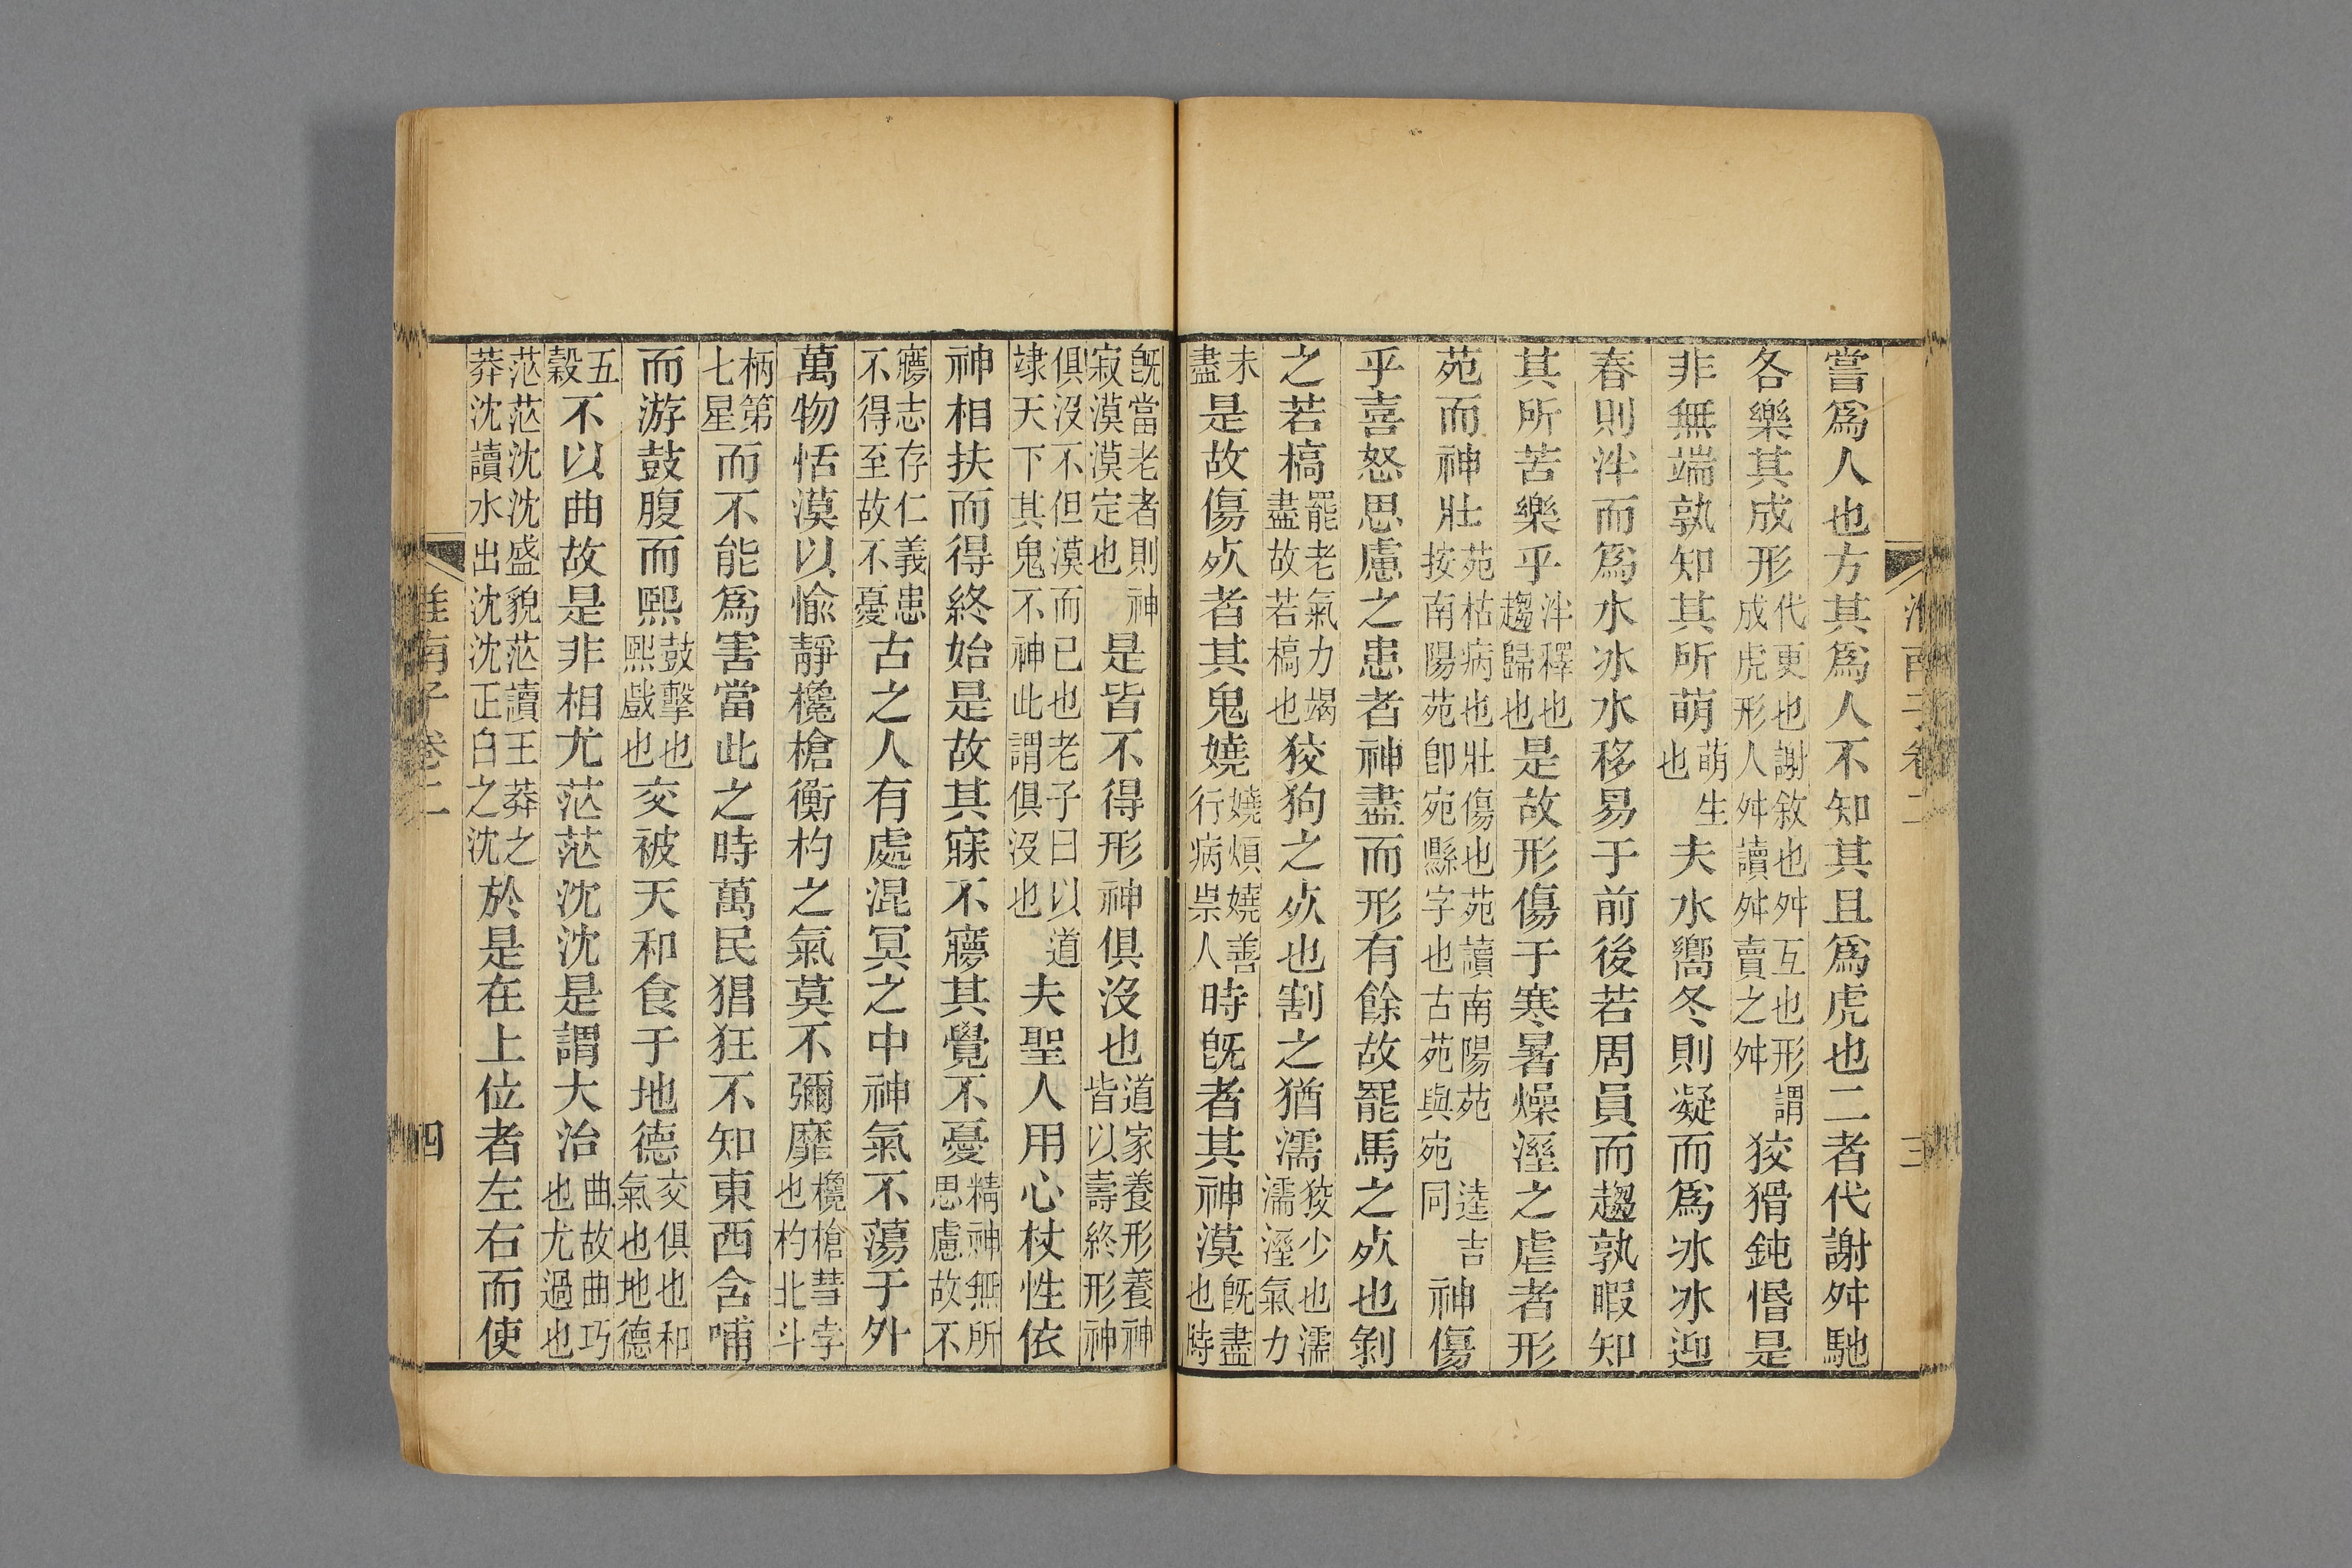 淮南子卷二　三
嘗爲人也方其爲人不知其且爲虎也二者代謝舛馳
各樂其成形代更也謝敘也舛互也形謂成虎形人舛讀舛賣之舛狡猾鈍惽是
非無端孰知其所萌萌生也夫水嚮冬則凝而爲冰冰迎
春則泮而爲水冰水移易于前後若周員而趨孰暇知
其所苦樂乎泮釋也趨歸也是故形傷于寒暑燥溼之虐者形
苑而神壯苑枯病也壯傷也苑讀南陽苑逵吉按南陽苑卽宛縣字也古苑與宛同神傷
乎喜怒思慮之患者神盡而形有餘故罷馬之死也剝
之若槁罷老氣力竭盡故若槁也狡狗之死也割之猶濡狡少也濡濡溼氣力
未盡是故傷死者其鬼嬈嬈煩嬈善行病祟人時旣者其神漠旣盡也時
旣當老者則神寂漠漠定也是皆不得形神俱沒也道家養形養神皆以壽終形神
俱沒不但漠而已也老子曰以道逮天下其鬼不神此謂俱沒也夫聖人用心杖性依
神相扶而得終始是故其寐不夢其覺不憂精神無所思慮故不
夢志存仁義患不得至故不憂古之人有處混冥之中神氣不蕩于外
萬物恬漠以愉靜欃槍衡杓之氣莫不彌靡欃槍彗孛也杓北斗
柄第七星而不能爲害當此之時萬民猖狂不知東西含哺
而游鼓腹而熙鼓擊也熙戲也交被天和食于地德交俱也和氣也地德
五穀不以曲故是非相尤茫茫沈沈是謂大治曲故曲巧也尤過也
茫茫沈沈盛貌茫讀王莽之莽沈讀水出沈沈正白之沈於是在上位者左右而使
淮南子卷二　四